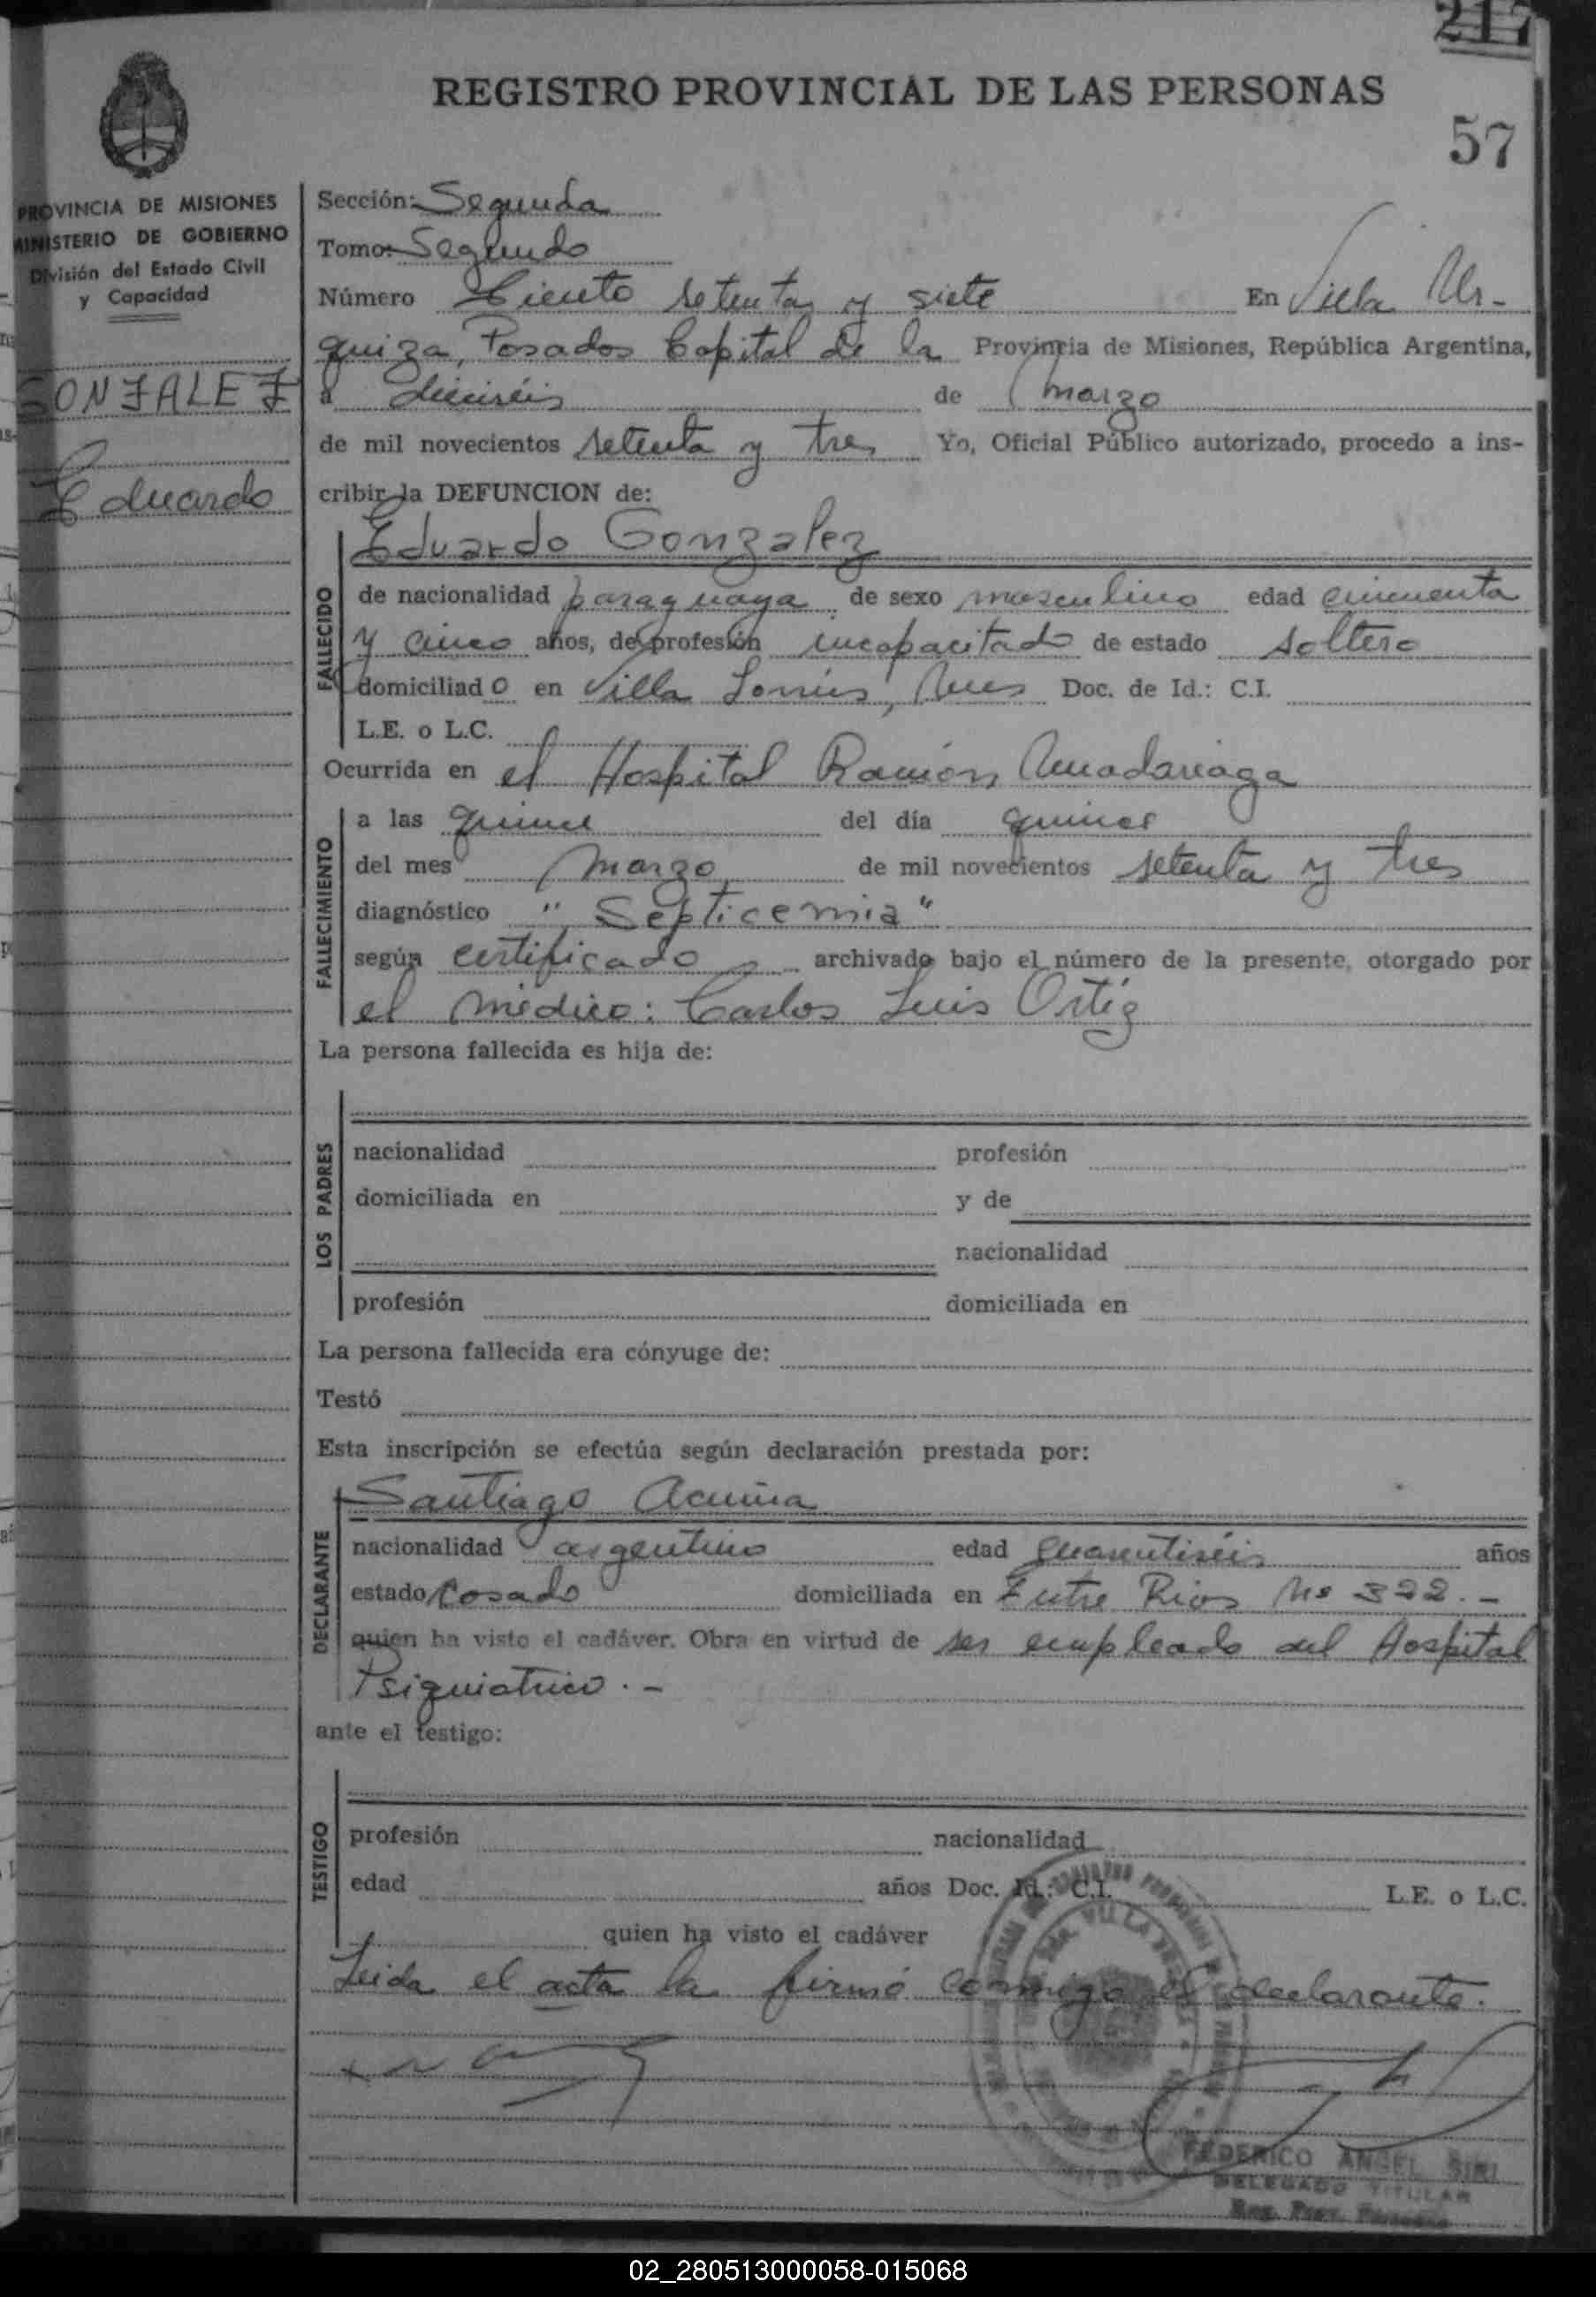 217
REGISTRO PROVINCIAL DE LAS PERSONAS
57
PROVINCIA DE MISIONES
MINISTERIO DE GOBIERNO
División del Estado Civil
y Capacidad
GONZALEZ
Eduardo
Sección: Segunda
Tomo: Segundo
Número Ciento setenta y siete En Villa Ur-
quiza, Posadas Capital de la Provincia de Misiones, República Argentina,
a dieciséis de marzo
de mil novecientos setenta y tres Yo, Oficial Público autorizado, procedo a ins-
cribir la DEFUNCION de:
Eduardo Gonzalez
FALLECIDO
de nacionalidad paraguaya de sexo masculino edad cincuenta
y cinco años, de profesión incapacitado de estado soltero
domiciliado en Villa Mnes Doc. de Id.: C.I.
L.E. o L.C.
Ocurrida en el Hospital Ramón Madariaga
FALLECIMIENTO
a las quince del día quince
del mes marzo de mil novecientos setenta y tres
diagnóstico "Septicemia"
según certificado archivado bajo el número de la presente, otorgado por
el médico: Carlos Luis Ortíz
La persona fallecida es hija de:
LOS PADRES
nacionalidad profesión
domiciliada en y de
nacionalidad
profesión domiciliada en
La persona fallecida era cónyuge de:
Testó
Esta inscripción se efectúa según declaración prestada por:
Santiago Acuña
DECLARANTE
nacionalidad argentino edad cuarentiséis años
estado casado domiciliada en Entre Rios Nº 322.-
quien ha visto el cadáver. Obra en virtud de ser empleado del Hospital
Psiquiatrico.-
ante el testigo:
TESTIGO
profesión nacionalidad
edad años Doc. Id.: C.I. L.E. o L.C.
quien ha visto el cadáver
Leida el acta la firmó conmigo el declarante.
FEDERICO ANGEL SIRI
DELEGADO TITULAR
Reg. Prov. Personas
02_280513000058-015068